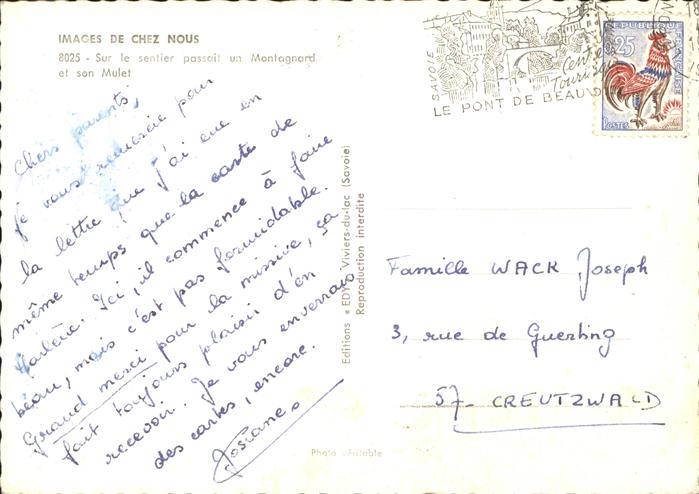 IMAGES DE CHEZ NOUS
8025 - Sur le sentier passait un Montagnard
et son Mulet
Chers parents,
Je vous remercie pour
la lettre que j'ai eue en
même temps que la carte de
Ici, il commence à faire
beau, mais c'est pas formidable.
Grand merci pour la missive, ça
fait toujours plaisir d'en
recevoir. Je vous enverrai
des cartes, encore.
Josiane
Editions « EDY » Viviers-du-lac (Savoie)
Reproduction interdite
Photo véritable
SAVOIE
Centre
Touristique
LE PONT DE BEAUVOI
REPUBLIQUE FRANÇAISE
0,25
POSTES
Famille WACK Joseph
3, rue de Guerting
57- CREUTZWALD